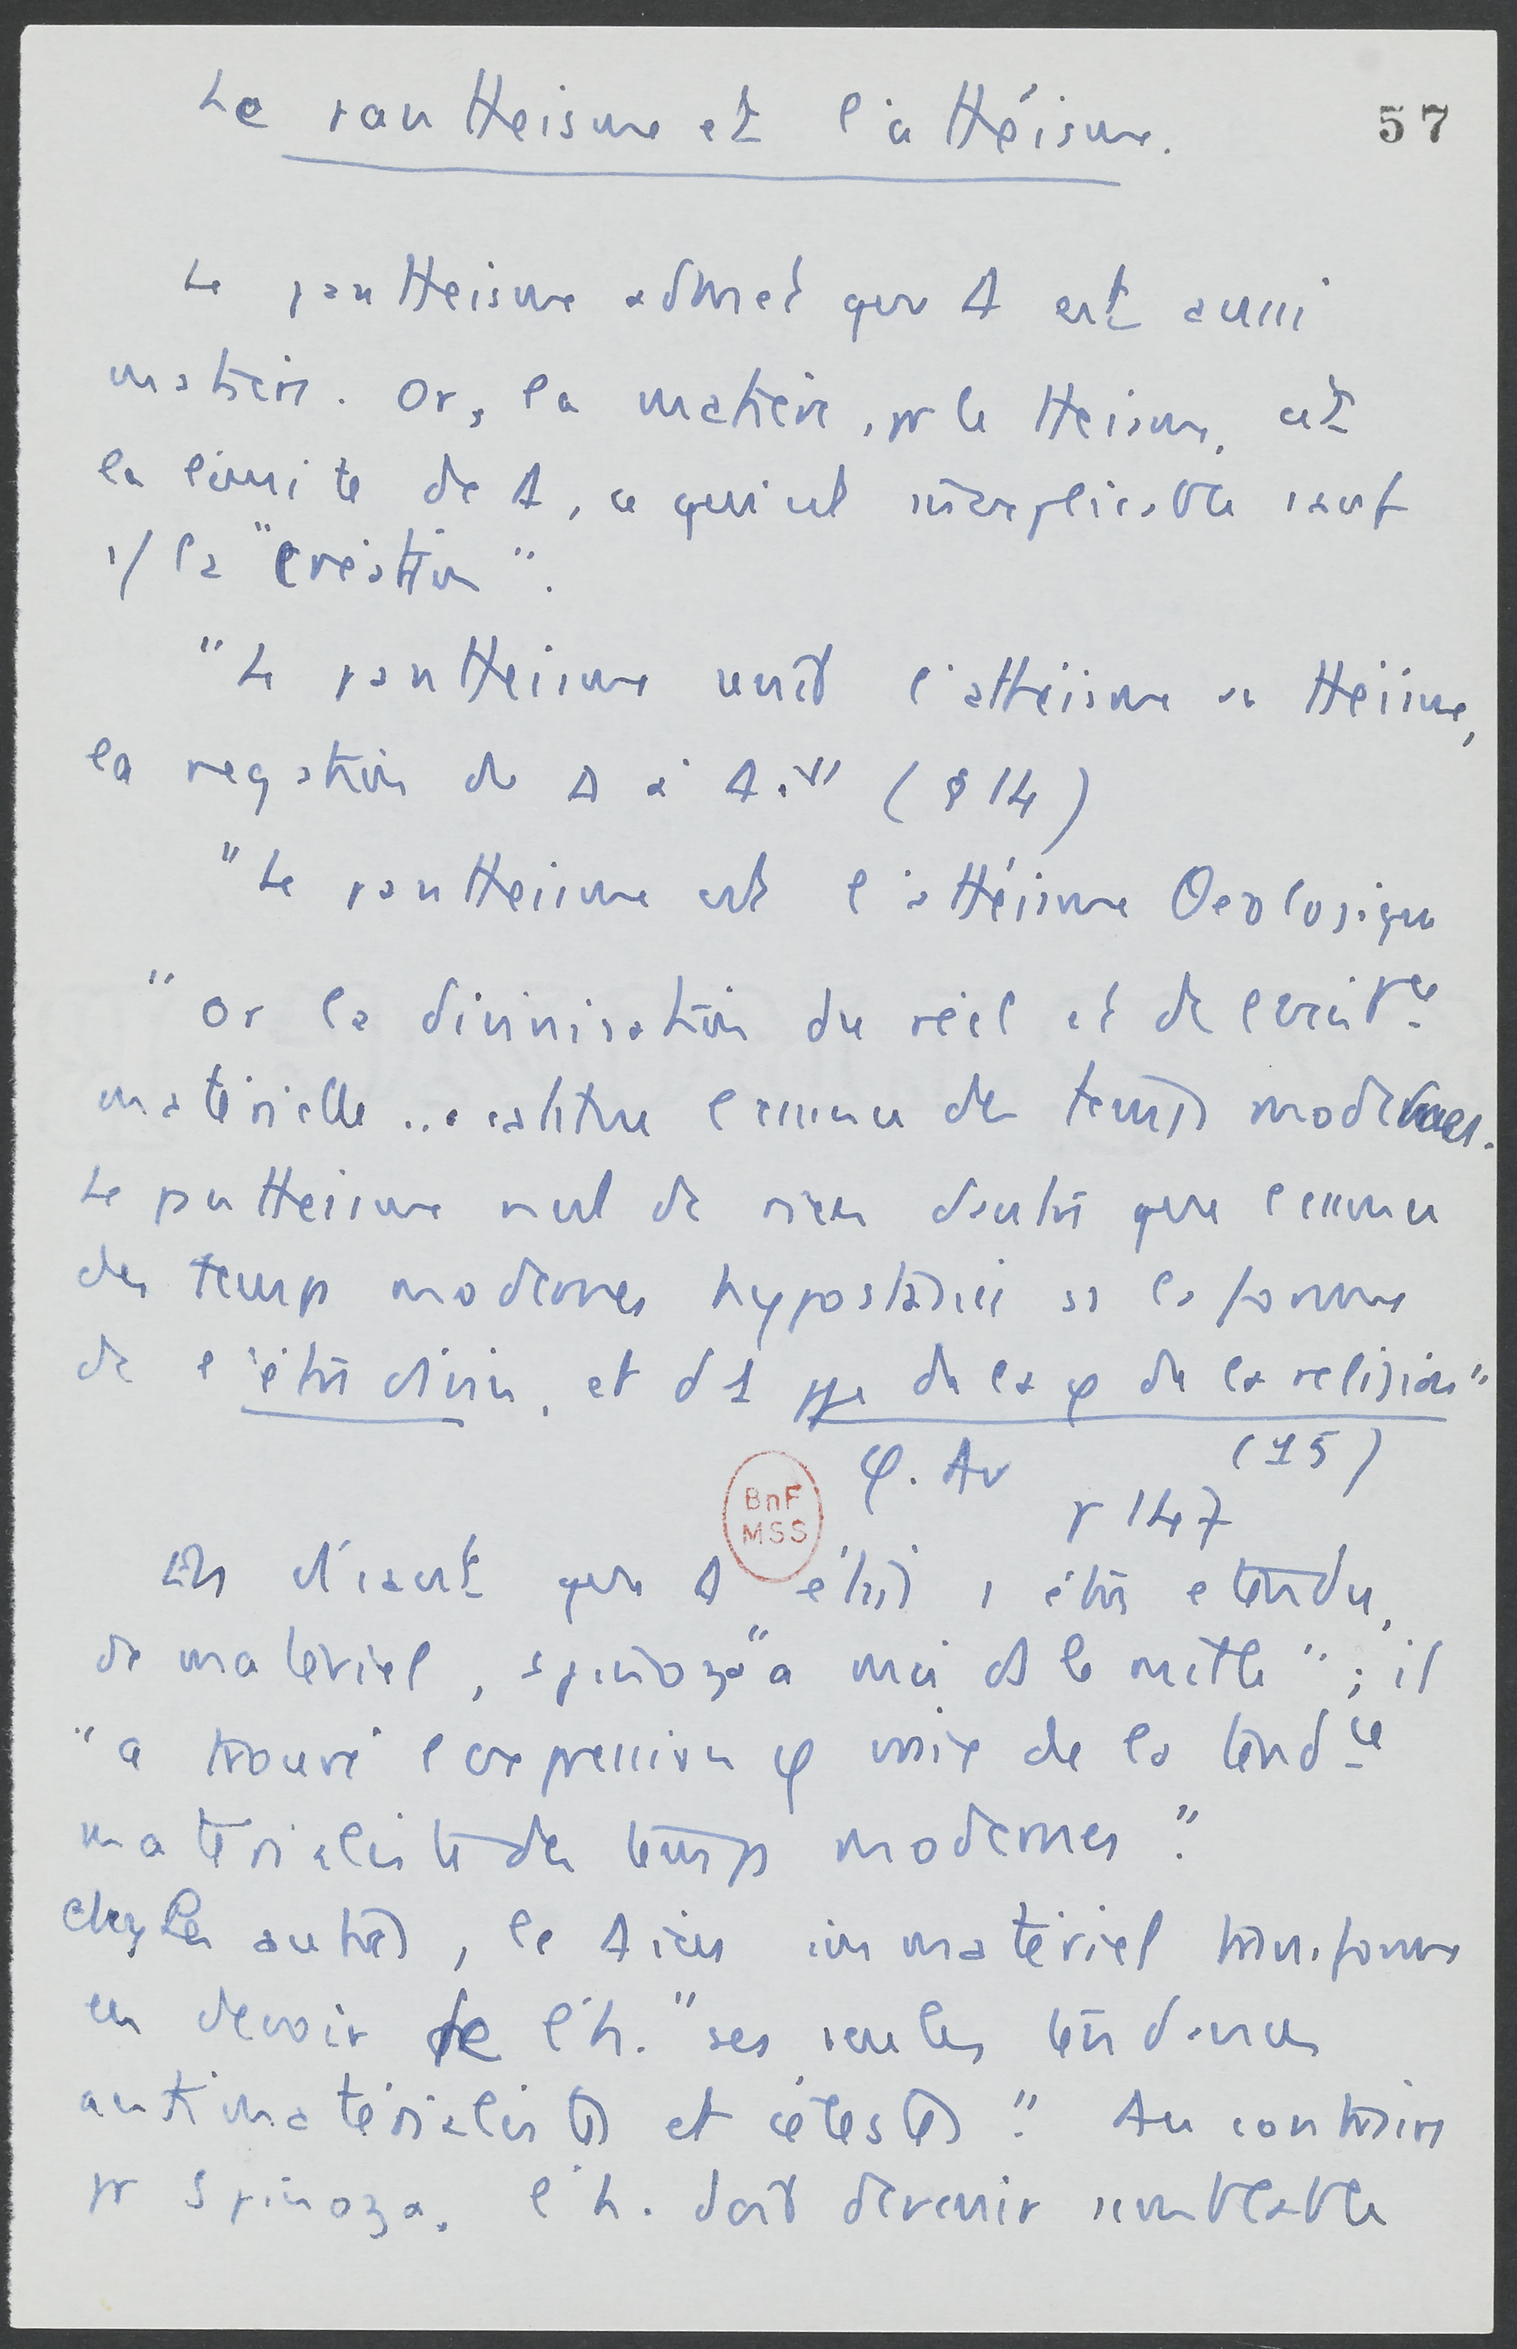 Le pantheisme et l'athéisme.
57
Le pantheisme admet que Δ est aussi
matière. Or, la matière, pr le theisme, est
la limite de Δ, ce qui est inexplicable sauf
par la "création".
"Le pantheisme unit l'athéisme au théisme,
la negation de Δ à Δ." (§ 14)
"Le pantheisme est l'athéisme théologique
"Or la divinisation du réel et de l'existce
matérielle ... est l'essence des temps modernes.
Le pantheisme n'est de rien d'autre que l'essence
des temps modernes hypostasiée ss la forme
de l'être divin, et d'1 ppe de la φ de la religion"
(15)
φ. Av
p 147
En disant que Δ était 1 être etendu,
de materiel, Spinoza "a mis ds le mille" ; il
"a trouvé l'expression φ vraie de la tendce
matérialiste des temps modernes".
Chez les autres, le Dieu immatériel transforme
en devoir de l'h. "ses seules tendances
antimatérialistes et célestes". Au contraire
pr Spinoza, l'h. doit devenir semblable
BnF
MSS